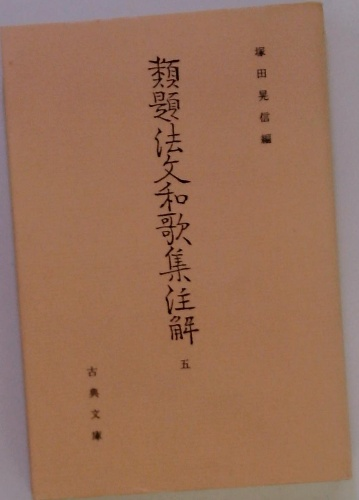 塚田晃信編
類題法文和歌集注解 五
古典文庫